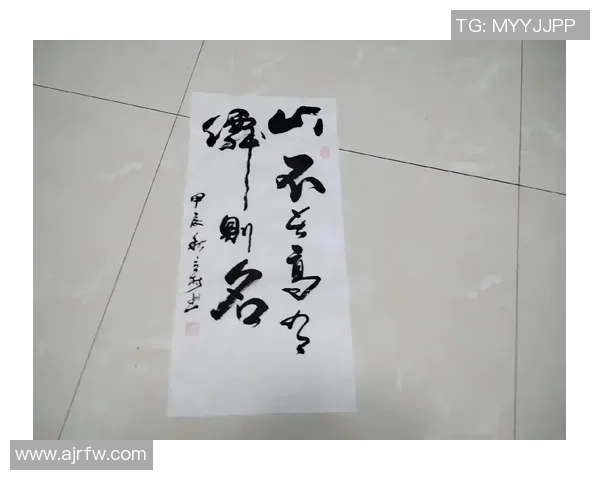 TG: MYYJJPP
山不在高有
僊則名
甲辰秋
www.ajrfw.com